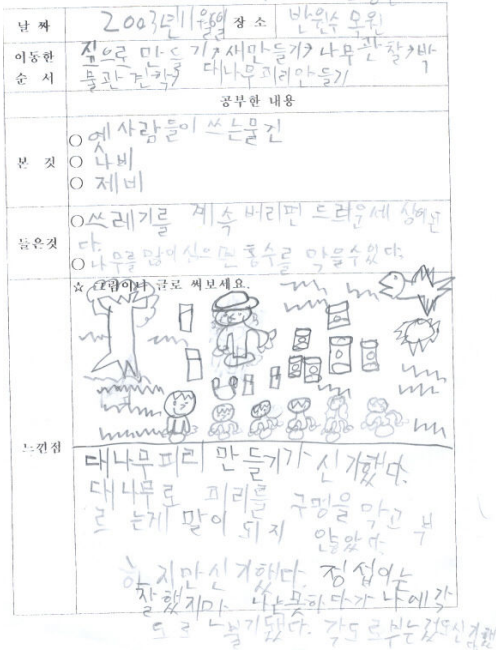 날 짜 2003년11월일 장 소 반원수목원
이동한 순 서 짚으로 만들기→새만들기→나무 관찰→박
물관견학→ 대나무피리만들기
공부한 내용
본 것
○ 옛사람들이 쓰는물건
○ 나비
○ 제비
들은것
○쓰레기를 계속 버리면 드러운세상이된
다.
○나무를 많이 심으면 홍수를 막을수있다.
느낀점
☆ 그림이나 글로 써보세요.
대나무피리 만들기가 신기했다.
대나무로 피리를 구멍을 막고 부
르는게 말이 되지 않았다.
하지만신기했다. 정섭이는
잘했지마 나는못하다가 나에각
도로 불기됬다. 각도로부는것도신기했